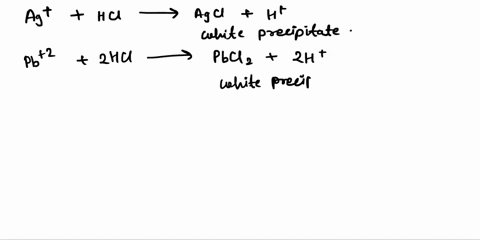 Ag⁺ + HCl ⟶ AgCl + H⁺
white precipitate.
Pb⁺² + 2HCl ⟶ PbCl₂ + 2H⁺
white precip